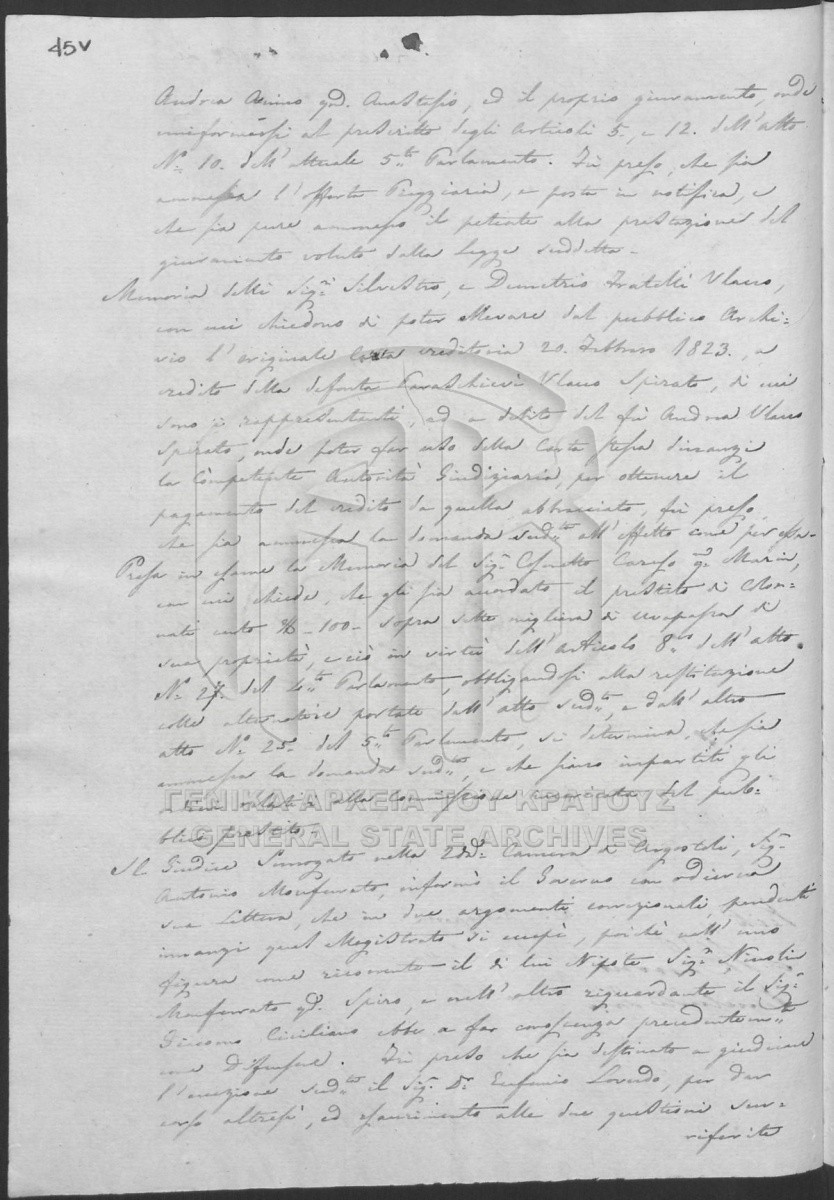 45v
Andrea Anino qd. Anastasio, ed il proprio giuramento, onde
uniformarsi al prescritto degli Articoli 5. e 12. dell'atto
Nº 10. dell'attuale 5to Parlamento. Fù preso, che sia
ammessa l'offerta Pieggiaria, e posta in notifica, e
che sia pure ammesso il petente alla prestazione del
giuramento voluto dalla Legge suddetta.
Memoria delli Sigri Silvestro, e Demetrio Fratelli Vlacco,
con cui chiedono di poter elevare dal pubblico Archi=
vio l'originale Carta creditoria 20. Febbraro 1823., a
credito della defonta Paraschievi Vlacco Spirato, di cui
sono i rappresententi, ed a debito del fù Andrea Vlacco
Spirato, onde poter far uso della Carta stessa dinanzi
la Competente Autorità Giudiziaria, per ottenere il
pagamento del credito da quella abbracciato, fù preso,
che sia ammessa la domanda sudta all'effetto come per essa.
Presa in esame la Memoria del Sigr Caruso qm Marin,
con cui chiede, che gli sia accordato il prestito di Colon=
nati cento 100 sopra sette migliara di uvapassa di
sua proprietà, e ciò in virtù dell'articolo 8vo dell'atto
Nº 27. del 4to Parlamento, obbligandosi alla restituzione
colle alternative portate dall'atto sudto, e dall'altro
atto Nº 25. del 5to Parlamento, si determina, che sia
ammessa la domanda sudta, e che siano impartiti gli
ordini relativi alla Commissione incaricata del pub=
blico prestito.
ΓΕΝΙΚΑ ΑΡΧΕΙΑ ΤΟΥ ΚΡΑΤΟΥΣ
GENERAL STATE ARCHIVES
Il Giudice Surrogato nella 2da Camera di Argostoli, Sigr
Antonio Monferrato, informò il Governo con odierna
sua Lettera, che in due argomenti correzionali, pendenti
innanzi qual Magistrato si eccepì, poichè nell'uno
figura come ricorrente il di lui Nipote Sigr Nicolin
Monferrato qd. Spiro, e nell'altro riguardante il Sigr
Giacomo Ciciliano ebbe a far conoscenza precedentemte
come Difensore. Fù preso che sia destinato a giudicare
l'eccezione sudta il Sigr Dr Eufemio Loverdo, per dar
corso altresì, ed esaurimento alle due questioni sur=
riferite